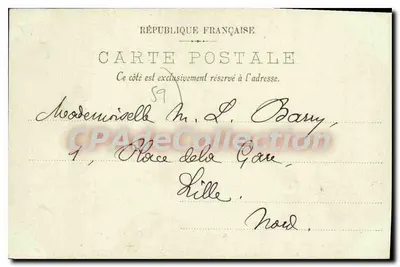 RÉPUBLIQUE FRANÇAISE
CARTE POSTALE
Ce côté est exclusivement réservé à l'adresse.
59
Mademoiselle M. L. Barry
CPACollection
1, Place de la Gare,
Lille.
Nord.